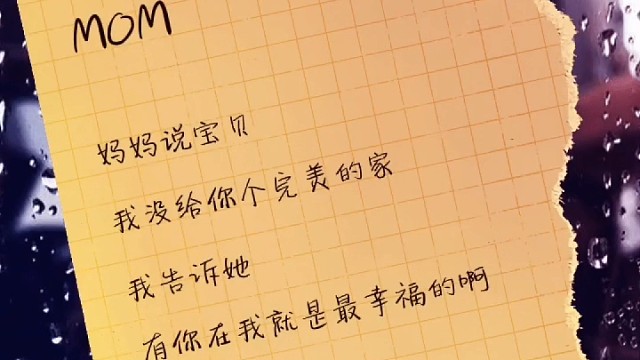 MOM
妈妈说宝贝
我没给你个完美的家
我告诉她
有你在我就是最幸福的啊